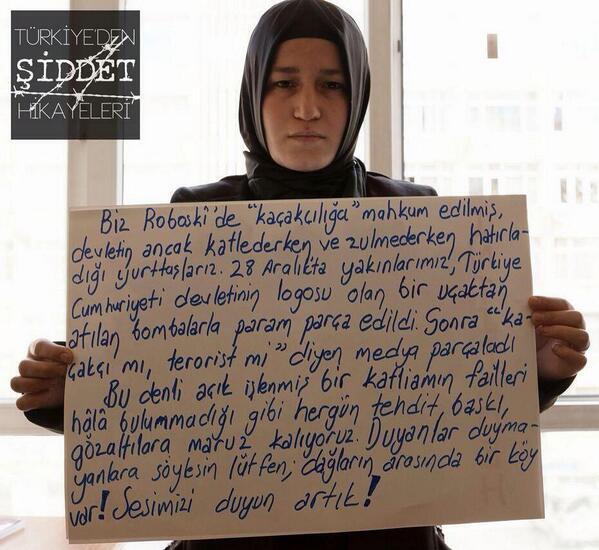 TÜRKİYE'DEN
ŞİDDET
HİKAYELERİ
Biz Roboski'de "kaçakçılığa" mahkum edilmiş,
devletin ancak katlederken ve zulmederken hatırla-
dığı yurttaşlarız. 28 Aralık'ta yakınlarımız, Türkiye
Cumhuriyeti devletinin logosu olan bir uçaktan
atılan bombalarla param parça edildi. Sonra "ka-
çakçı mı, terorist mi" diyen medya parçaladı
Bu denli açık işlenmiş bir katliamın failleri
hâlâ bulunmadığı gibi hergün tehdit, baskı,
gözaltılara maruz kalıyoruz. Duyanlar duyma-
yanlara söylesin lütfen; dağların arasında bir köy
var! Sesimizi duyun artık!